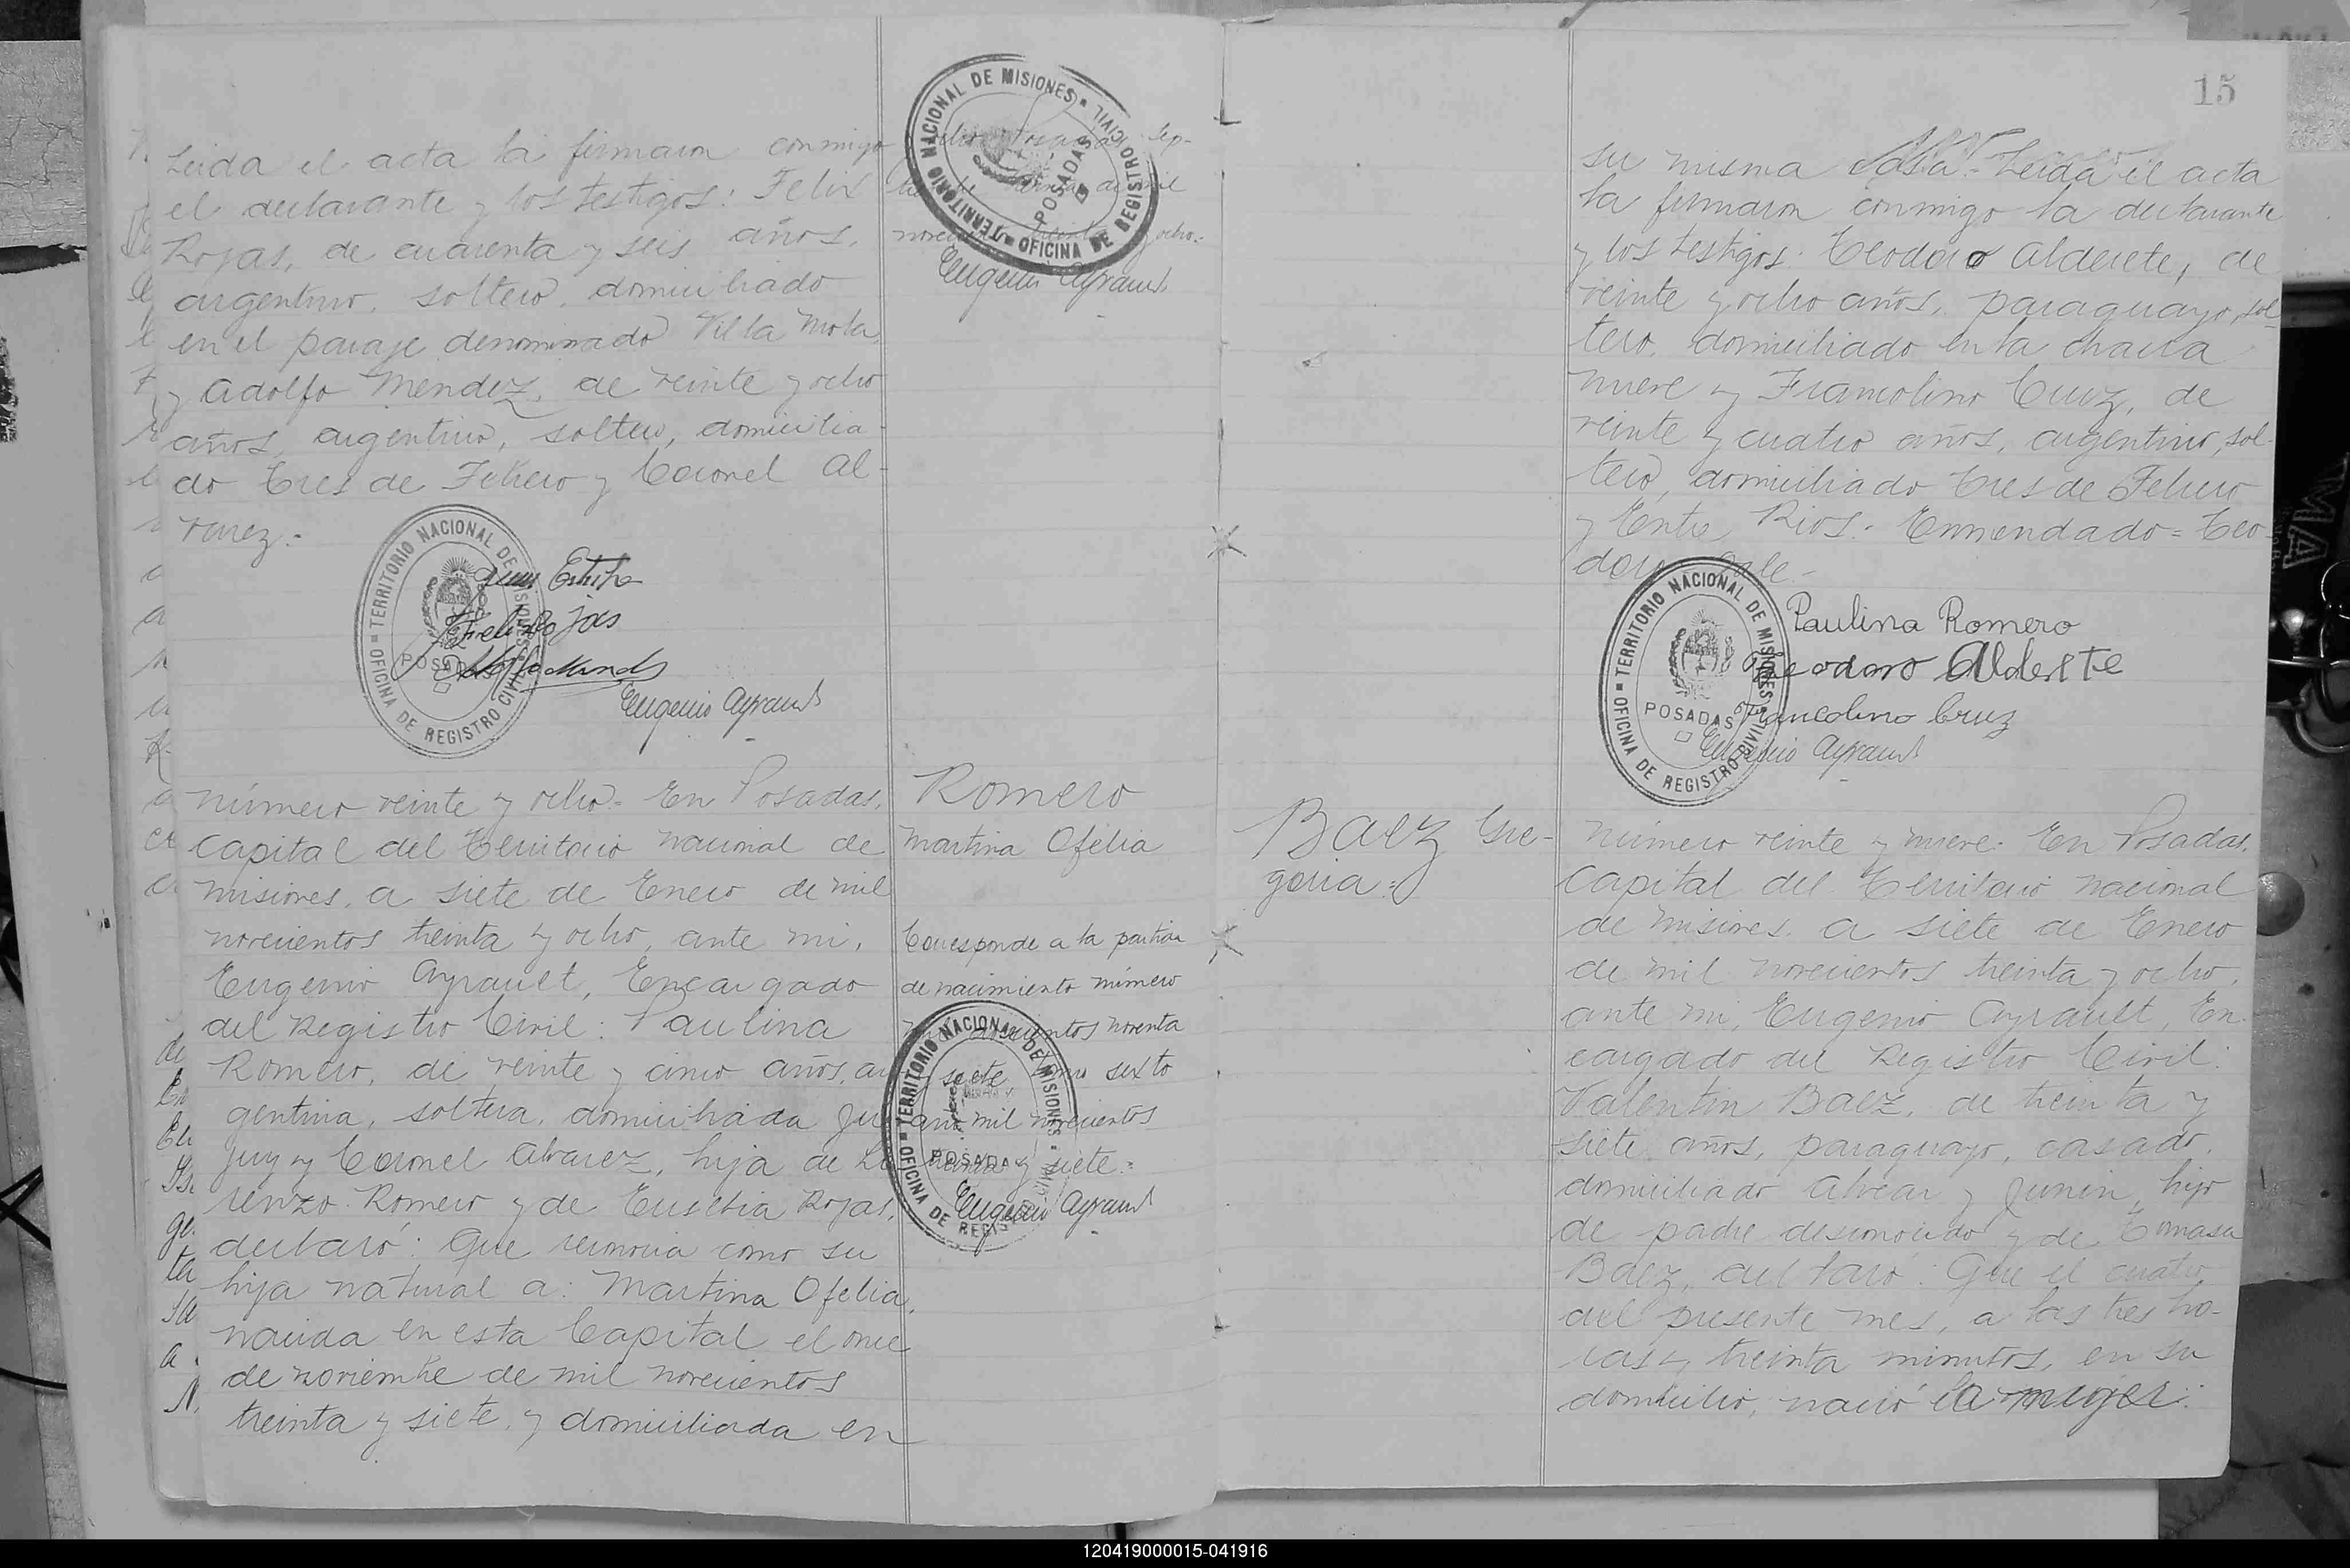 Leida el acta la firmaron conmigo
el declarante y los testigos: Felix
Rojas, de cuarenta y seis años,
argentino, soltero, domiciliado
en el paraje denominado Villa Mola,
y Adolfo Mendez, de veinte y ocho
años, argentino, soltero, domicilia-
do Tres de Febrero y Coronel Al-
varez.-
TERRITORIO NACIONAL DE MISIONES
OFICINA DE REGISTRO CIVIL
POSADAS
Felix Rojas
Adolfo Mendez
Eugenio Ayrault
TERRITORIO NACIONAL DE MISIONES
OFICINA DE REGISTRO CIVIL
POSADAS
ocho. Posadas, Sep-
de mil
ocho.-
Eugenio Ayrault
Número veinte y ocho.- En Posadas,
Capital del Territorio Nacional de
Misiones, a siete de Enero de mil
novecientos treinta y ocho, ante mi,
Eugenio Ayrault, Encargado
del Registro Civil: Paulina
Romero, de veinte y cinco años, ar-
gentina, soltera, domiciliada Ju-
juy y Coronel Alvarez, hija de Lo-
renzo Romero y de Eusebia Rojas,
declaró: Que reconocia como su
hija natural a: Martina Ofelia,
nacida en esta Capital el once
de noviembre de mil novecientos
treinta y siete, y domiciliada en
Romero
Martina Ofelia
Corresponde a la partida
de nacimiento número
mil doscientos noventa
y siete, tomo sexto
año mil novecientos
treinta y siete.-
Eugenio Ayrault
TERRITORIO NACIONAL DE MISIONES
OFICINA DE REGISTRO
POSADAS
15
su misma casa.- Leida el acta
la firmaron conmigo la declarante
y los testigos: Teodoro Alderete, de
veinte y ocho años, paraguayo, sol-
tero, domiciliado en la chacra
nueve y Francolino Cruz, de
veinte y cuatro años, argentino, sol-
tero, domiciliado Tres de Febrero
y Entre Rios.- Enmendado= Teo-
doro. Vale.-
TERRITORIO NACIONAL DE MISIONES
OFICINA DE REGISTRO CIVIL
POSADAS
Paulina Romero
Teodoro Alderete
Francolino Cruz
Eugenio Ayrault
Baez Gre-
goria.-
Número veinte y nueve. En Posadas,
Capital del Territorio Nacional
de Misiones, a siete de Enero
de mil novecientos treinta y ocho,
ante mi, Eugenio Ayrault, En-
cargado del Registro Civil:
Valentin Baez, de treinta y
siete años, paraguayo, casado,
domiciliado Alvear y Junin, hijo
de padre desconocido y de Tomasa
Baez, declaró: Que el cuatro
del presente mes, a las tres ho-
ras y treinta minutos, en su
domicilio, nació la mujer:
120419000015-041916